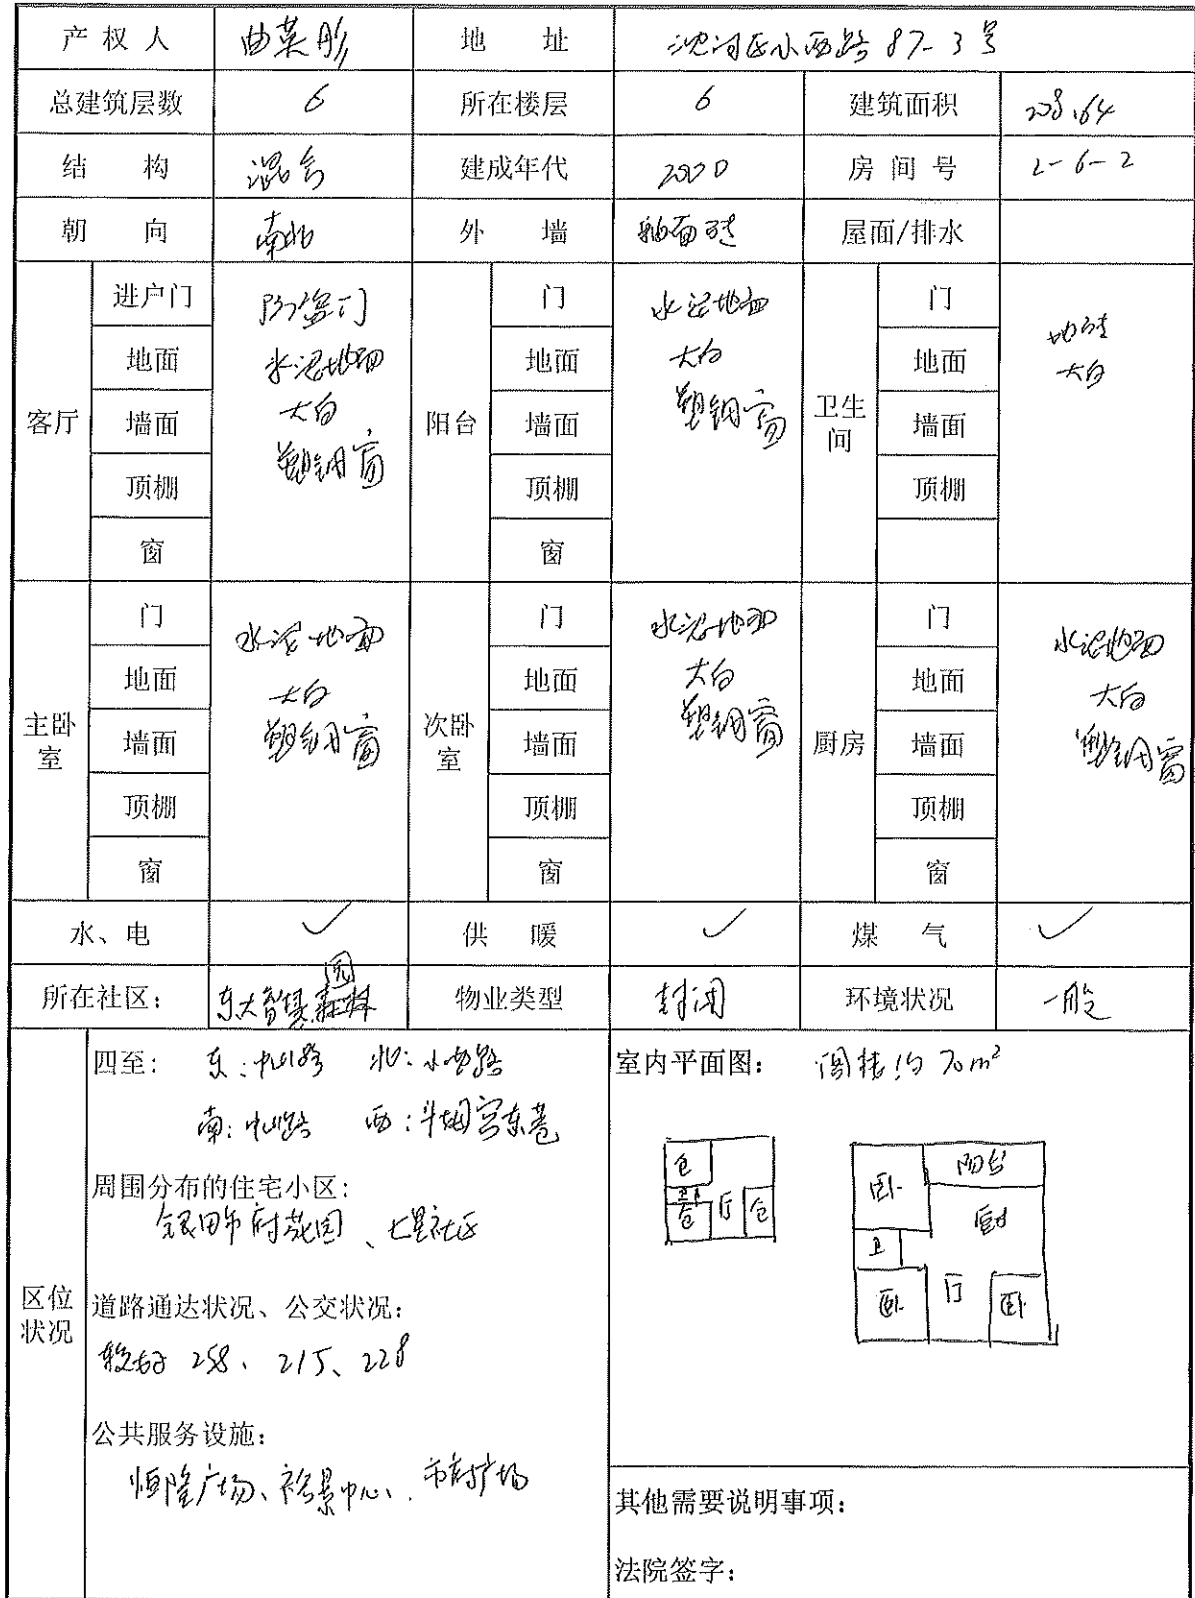 产权人 曲菜彤 地址 沈河区小西路87-3号
总建筑层数 6 所在楼层 6 建筑面积 208.64
结构 混合 建成年代 2000 房间号 2-6-2
朝向 南北 外墙 釉面砖 屋面/排水
客厅
进户门
地面
墙面
顶棚
窗
防盗门
水泥地面
大白
塑钢窗
阳台
门
地面
墙面
顶棚
窗
水泥地面
大白
塑钢窗
卫生间
门
地面
墙面
顶棚
地砖
大白
主卧室
门
地面
墙面
顶棚
窗
水泥地面
大白
塑钢窗
次卧室
门
地面
墙面
顶棚
窗
水泥地面
大白
塑钢窗
厨房
门
地面
墙面
顶棚
窗
水泥地面
大白
塑钢窗
水、电 ✓ 供暖 ✓ 煤气 ✓
所在社区： 东大智慧园 物业类型 封闭 环境状况 一般
区位状况
四至： 东： 北：小西路
南： 西：斗姆宫东巷
周围分布的住宅小区：
银田市府花园、七星社区
道路通达状况、公交状况：
较好 258、215、228
公共服务设施：
恒隆广场、裕景中心、市府广场
室内平面图： 阁楼约70m²
仓
卫
仓 厅 仓
卧 阳台
厨
卫
卧 厅 卧
其他需要说明事项：
法院签字：